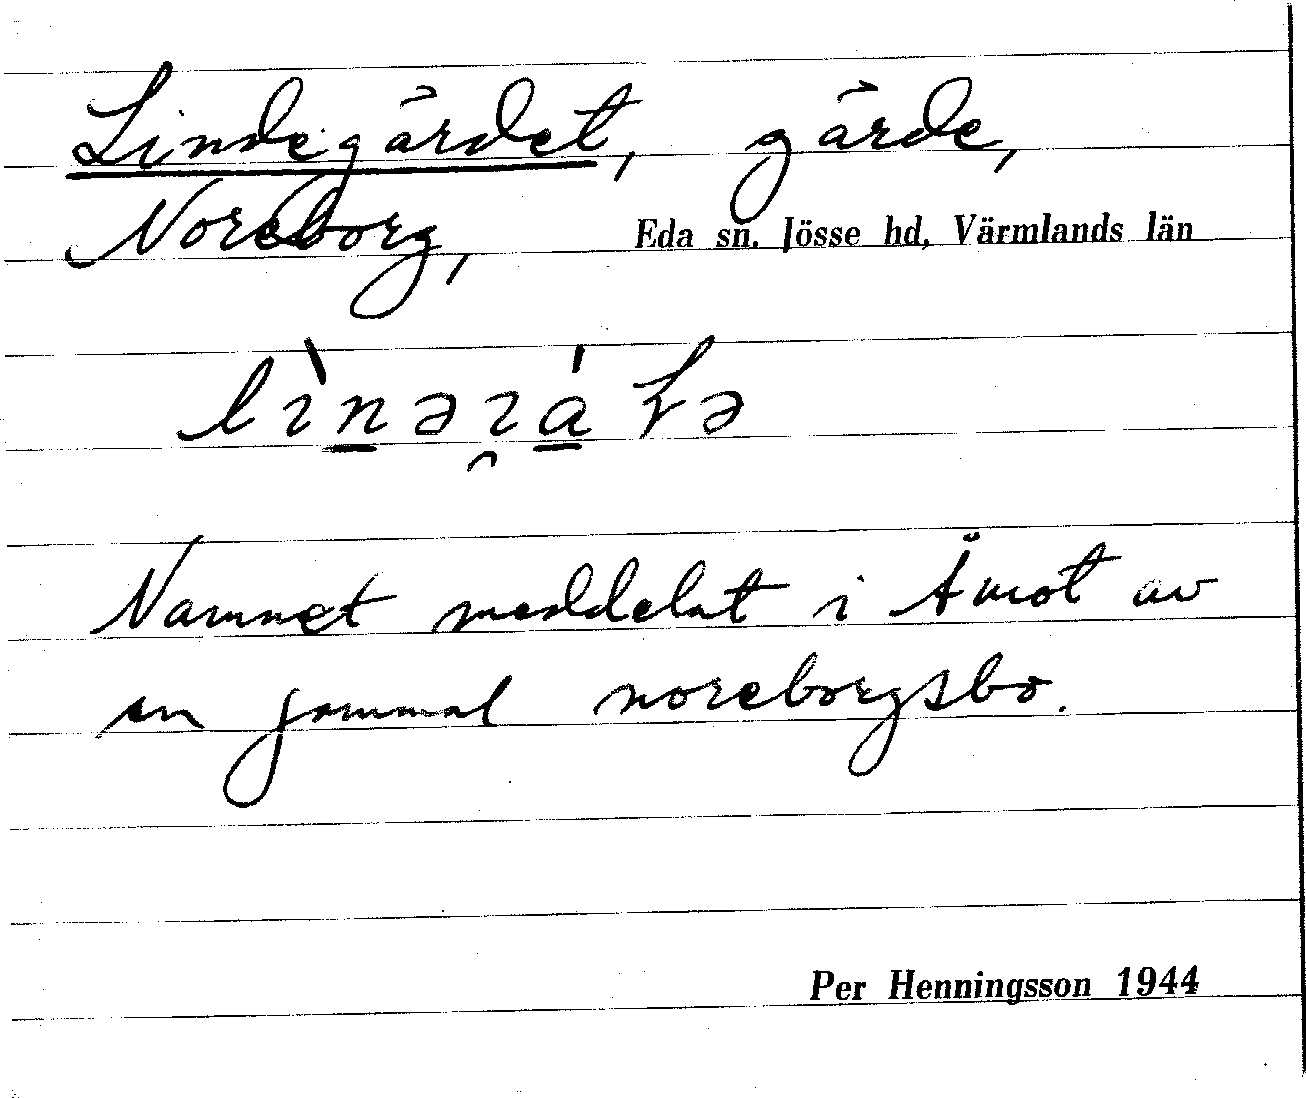 Lindegärdet, gärde,
Noreborg, Eda sn. Jösse hd, Värmlands län
Namnet meddelat i Åmot av
en gammal noreborgsbo.
Per Henningsson 1944